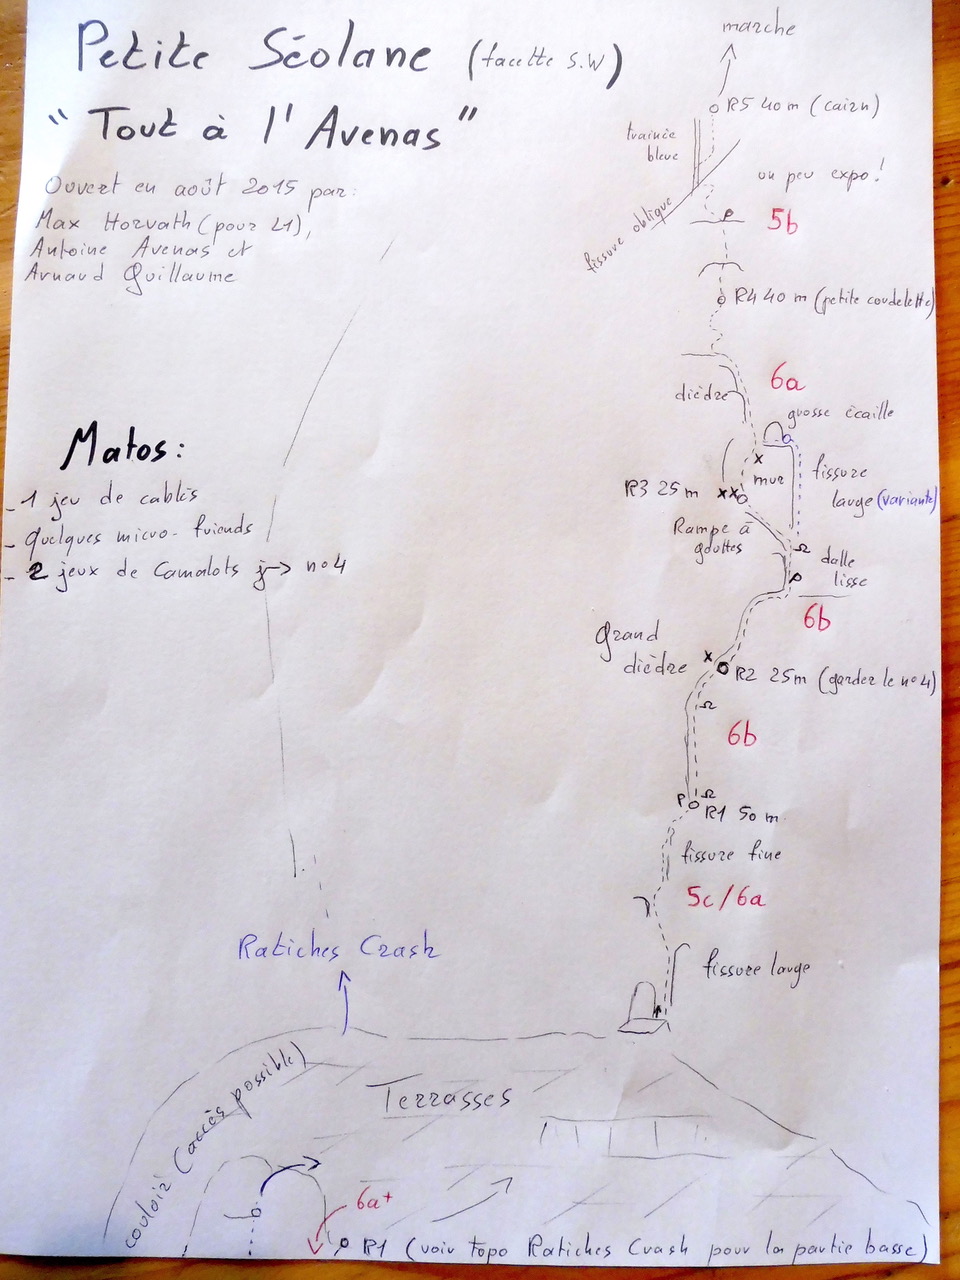 Petite Séolane (facette S.W)
"Tout à l'Avenas"
Ouvert en août 2015 par:
Max Horvath (pour L1),
Antoine Avenas et
Arnaud Guillaume
Matos:
- 1 jeu de cablés
- quelques micro-friends
- 2 jeux de Camalots j-> n°4
marche
R5 40 m (cairn)
trainée
bleue
un peu expo!
5b
fissure oblique
R4 40 m (petite coudelette)
6a
dièdre
grosse écaille
mur
fissure
large (variante)
R3 25 m
Rampe à
gouttes
dalle
lisse
6b
Grand
dièdre
R2 25m (garder le n°4)
6b
R1 50 m
fissure fine
5c/6a
fissure large
Ratiches Crash
couloir (accès possible)
Terrasses
6a+
R1 (voir topo Ratiches Crash pour la partie basse)